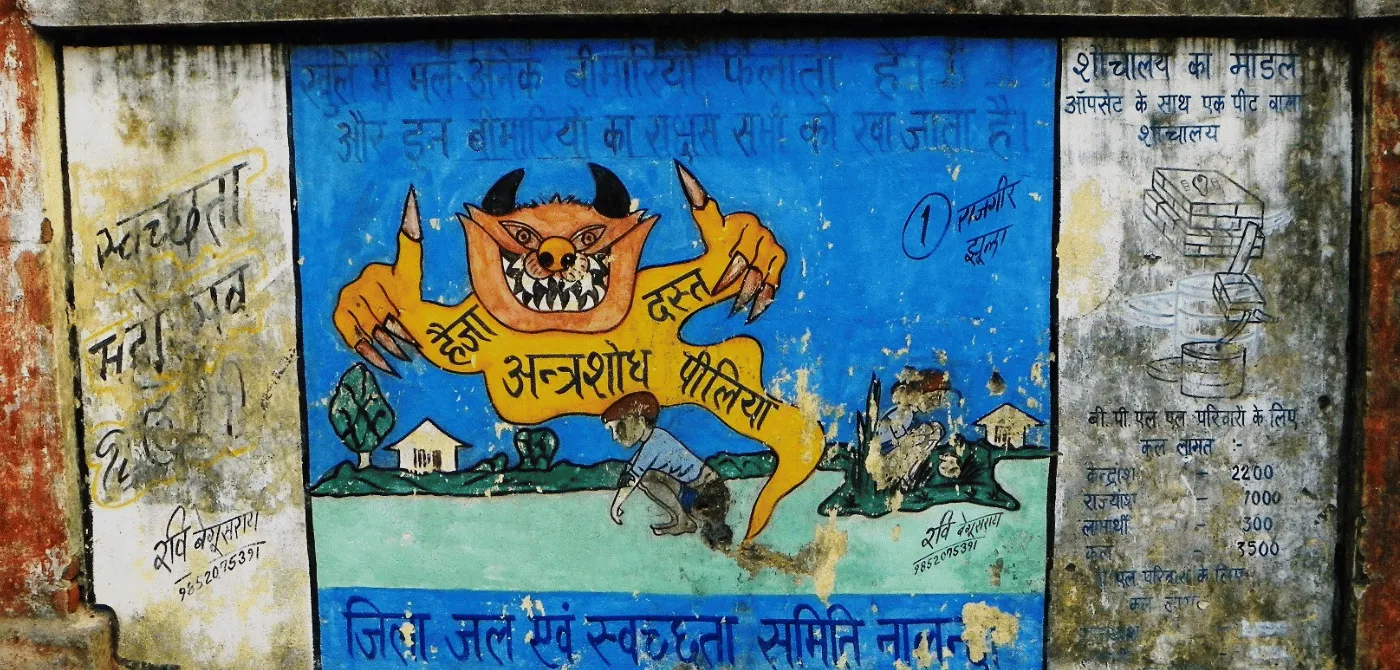 स्वच्छता
रवि बेगूसराय
9852075391
खुले में मल अनेक बीमारियाँ फैलाता है।
और इन बीमारियों का राक्षस सभी को खा जाता है।
1 राजगीर
झूला
हैजा
दस्त
अन्त्रशोध
पीलिया
रवि बेगूसराय
9852075391
जिला जल एवं स्वच्छता समिति
शौचालय का मॉडल
ऑपसेट के साथ एक पीट वाला
शौचालय
बी.पी.एल एल परिवारों के लिए
कुल लागत :-
केन्द्रांश - 2200
राज्यांश - 7000
लाभार्थी - 300
कुल - 3500
एल परिवारों के लिए